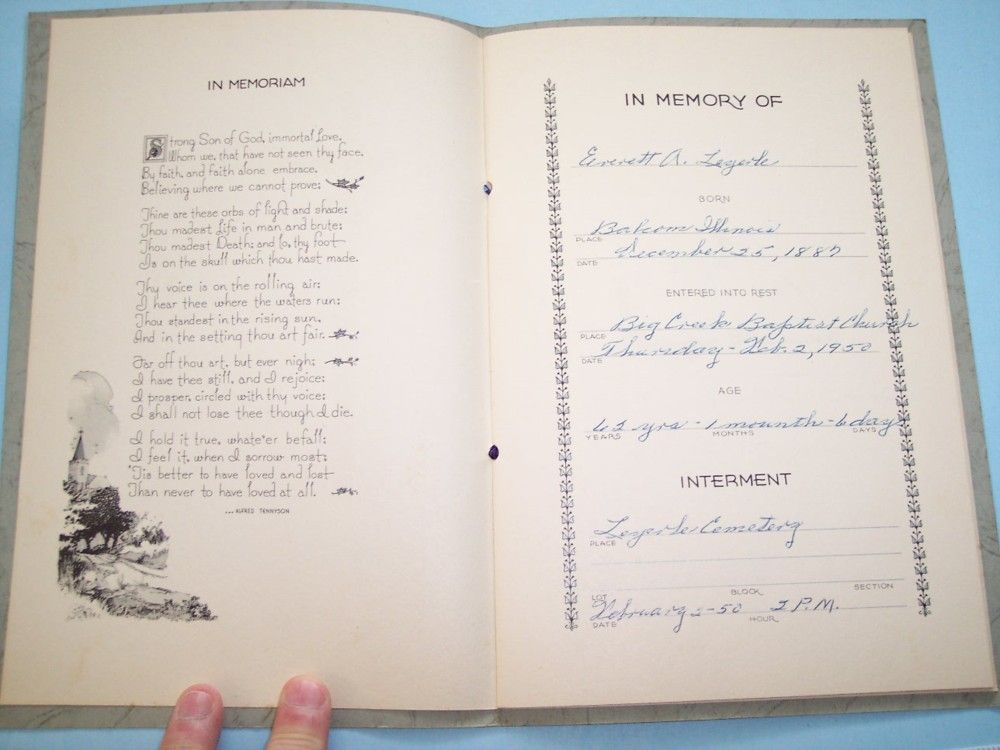 IN MEMORIAM
Strong Son of God, immortal Love,
Whom we, that have not seen thy face,
By faith, and faith alone embrace,
Believing where we cannot prove;
Thine are these orbs of light and shade;
Thou madest Life in man and brute;
Thou madest Death; and lo, thy foot
Is on the skull which thou hast made.
Thy voice is on the rolling air;
I hear thee where the waters run;
Thou standest in the rising sun,
And in the setting thou art fair.
Far off thou art, but ever nigh;
I have thee still, and I rejoice;
I prosper, circled with thy voice;
I shall not lose thee though I die.
I hold it true, whate'er befall;
I feel it, when I sorrow most;
'Tis better to have loved and lost
Than never to have loved at all.
...ALFRED TENNYSON
IN MEMORY OF
Everett A. Legerle
BORN
Balcom Illinois
PLACE
December 25, 1887
DATE
ENTERED INTO REST
Big Creek Baptist Church
PLACE
Thursday - Feb. 2, 1950
DATE
AGE
62 yrs - 1 mounth - 6 days
YEARS MONTHS DAYS
INTERMENT
Legerle Cemetery
PLACE
LOT BLOCK SECTION
February 2-50 2 P.M.
DATE HOUR